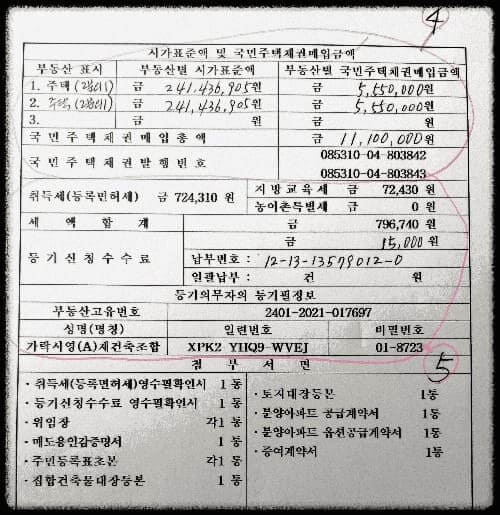 ④
시가표준액 및 국민주택채권매입금액
부동산 표시 부동산별 시가표준액 부동산별 국민주택채권매입금액
1. 주택 금 241,436,905원 금 5,550,000원
2. 주택 금 241,436,905원 금 5,550,000원
3. 금 원 금 원
국민주택채권매입총액 금 11,100,000원
국민주택채권발행번호 085310-04-803842
085310-04-803843
취득세(등록면허세) 금 724,310 원 지방교육세 금 72,430 원
농어촌특별세 금 0 원
세액합계 금 796,740 원
등기신청수수료 금 15,000 원
납부번호 : 12-13-13579012-0
일괄납부 : 건 원
등기의무자의 등기필정보
부동산고유번호 2401-2021-017697
성명(명칭) 일련번호 비밀번호
가락시영(A)재건축조합 XPK2 YHQ9-WVEJ 01-8723
첨부서면 ⑤
· 취득세(등록면허세)영수필확인서 1 통
· 등기신청수수료 영수필확인서 1 통
· 위임장 각1 통
· 매도용인감증명서 1 통
· 주민등록표초본 각1 통
· 집합건축물대장등본 1 통
· 토지대장등본 1통
· 분양아파트 공급계약서 1통
· 분양아파트 옵션공급계약서 1통
· 증여계약서 1통